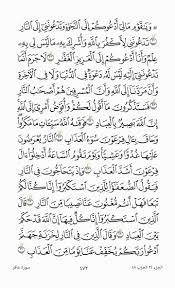 ۞ وَيَٰقَوْمِ مَا لِىٓ أَدْعُوكُمْ إِلَى ٱلنَّجَوٰةِ وَتَدْعُونَنِىٓ إِلَى ٱلنَّارِ
٤١ تَدْعُونَنِى لِأَكْفُرَ بِٱللَّهِ وَأُشْرِكَ بِهِۦ مَا لَيْسَ لِى بِهِۦ
عِلْمٌ وَأَنَا۠ أَدْعُوكُمْ إِلَى ٱلْعَزِيزِ ٱلْغَفَّٰرِ ٤٢ لَا جَرَمَ أَنَّمَا
تَدْعُونَنِىٓ إِلَيْهِ لَيْسَ لَهُۥ دَعْوَةٌ فِى ٱلدُّنْيَا وَلَا فِى ٱلْءَاخِرَةِ
وَأَنَّ مَرَدَّنَآ إِلَى ٱللَّهِ وَأَنَّ ٱلْمُسْرِفِينَ هُمْ أَصْحَٰبُ ٱلنَّارِ
٤٣ فَسَتَذْكُرُونَ مَآ أَقُولُ لَكُمْ وَأُفَوِّضُ أَمْرِىٓ إِلَى
ٱللَّهِ إِنَّ ٱللَّهَ بَصِيرٌۢ بِٱلْعِبَادِ ٤٤ فَوَقَىٰهُ ٱللَّهُ سَيِّـَٔاتِ مَا مَكَرُوا۟
وَحَاقَ بِـَٔالِ فِرْعَوْنَ سُوٓءُ ٱلْعَذَابِ ٤٥ ٱلنَّارُ يُعْرَضُونَ
عَلَيْهَا غُدُوًّا وَعَشِيًّا وَيَوْمَ تَقُومُ ٱلسَّاعَةُ أَدْخِلُوٓا۟ ءَالَ
فِرْعَوْنَ أَشَدَّ ٱلْعَذَابِ ٤٦ وَإِذْ يَتَحَآجُّونَ فِى ٱلنَّارِ
فَيَقُولُ ٱلضُّعَفَٰٓؤُا۟ لِلَّذِينَ ٱسْتَكْبَرُوٓا۟ إِنَّا كُنَّا لَكُمْ
تَبَعًا فَهَلْ أَنتُم مُّغْنُونَ عَنَّا نَصِيبًا مِّنَ ٱلنَّارِ ٤٧
قَالَ ٱلَّذِينَ ٱسْتَكْبَرُوٓا۟ إِنَّا كُلٌّ فِيهَآ إِنَّ ٱللَّهَ قَدْ حَكَمَ
بَيْنَ ٱلْعِبَادِ ٤٨ وَقَالَ ٱلَّذِينَ فِى ٱلنَّارِ لِخَزَنَةِ جَهَنَّمَ
ٱدْعُوا۟ رَبَّكُمْ يُخَفِّفْ عَنَّا يَوْمًا مِّنَ ٱلْعَذَابِ ٤٩
سورة غافر ٤٧٢ الجزء ٢٤ الحزب ٤٨